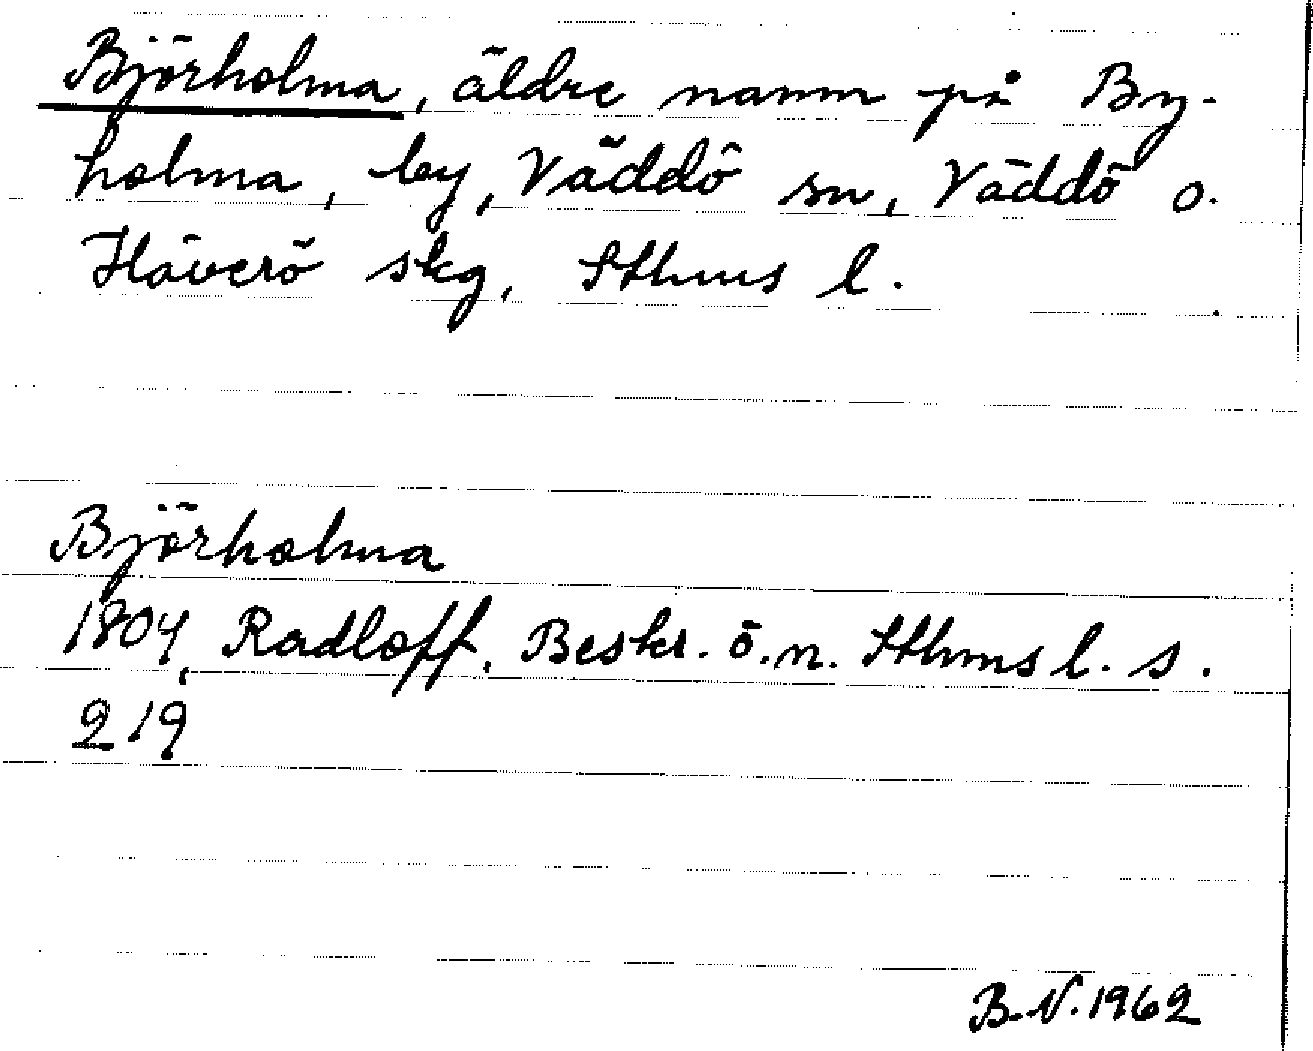 Björholma, äldre namn på By-
holma, by, Väddö sn, Väddö o.
Häverö skg, Sthms l.
Björholma
1804, Radloff, Beskr. ö. n. Sthms l. s.
219
B.N. 1962